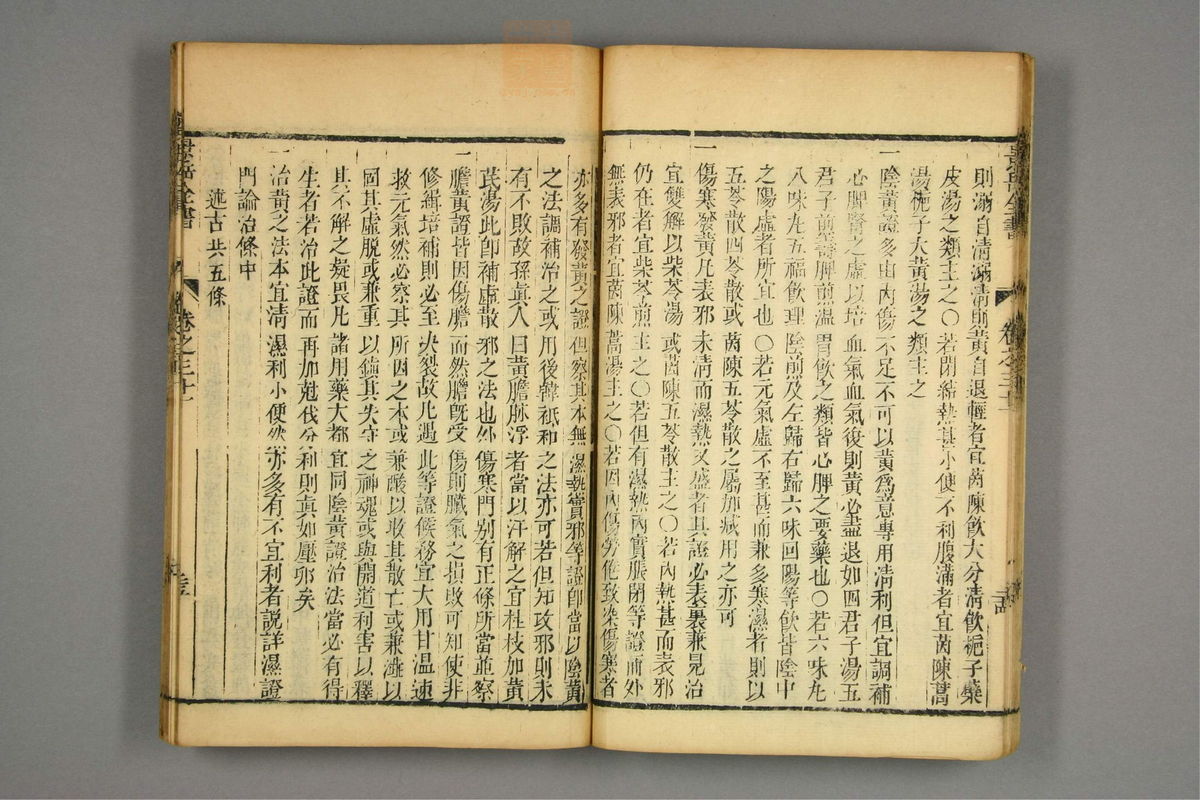 則溺自清溺清而黃自退輕者宜茵陳飲大分清飲梔子蘗
皮湯之類主之〇若閉結熱甚小便不利腹滿者宜茵陳蒿
湯梔子大黃湯之類主之
一陰黃證多由內傷不足不可以黃為意專用清利但宜調補
心脾腎之虛以培血氣血氣復則黃必盡退如四君子湯五
君子煎壽脾煎溫胃飲之類皆心脾之要藥也〇若六味丸
八味丸五福飲理陰煎及左歸右歸六味回陽等飲皆陰中
之陽虛者所宜也〇若元氣虛不至甚而兼多寒濕者則以
五苓散四苓散或茵陳五苓散之屬加減用之亦可
一傷寒發黃凡表邪未清而濕熱又盛者其證必表裏兼見治
宜雙解以柴苓湯或茵陳五苓散主之〇若內熱甚而表邪
仍在者宜柴苓煎主之〇若但有濕熱內實脹閉等證而外
無表邪者宜茵陳蒿湯主之〇若因內傷勞倦致染傷寒者
亦多有發黃之證但察其本無濕熱實邪等證即當以陰黃
之法調補治之或用後韓祗和之法亦可若但知攻邪則未
有不敗故孫真人曰黃膽脉浮者當以汗解之宜桂枝加黃
芪湯此即補虛散邪之法也外傷寒門別有正條所當並察
一膽黃證皆因傷膽而然膽既受傷則臟氣之損敗可知使非
修緝培補則必至決裂故凡遇此等證候務宜大用甘溫速
救元氣然必察其所因之本或兼酸以收其散亡或兼澁以
固其虛脫或兼重以鎮其失守之神魂或與開道利害以釋
其不解之疑畏凡諸用藥大都宜同陰黃證治法當必有得
生者若治此證而再加尅伐分利則真如壓卵矣
一治黃之法本宜清濕利小便然亦多有不宜利者説詳濕證
門論治條中
述古 共五條
景岳全書
卷之三十一